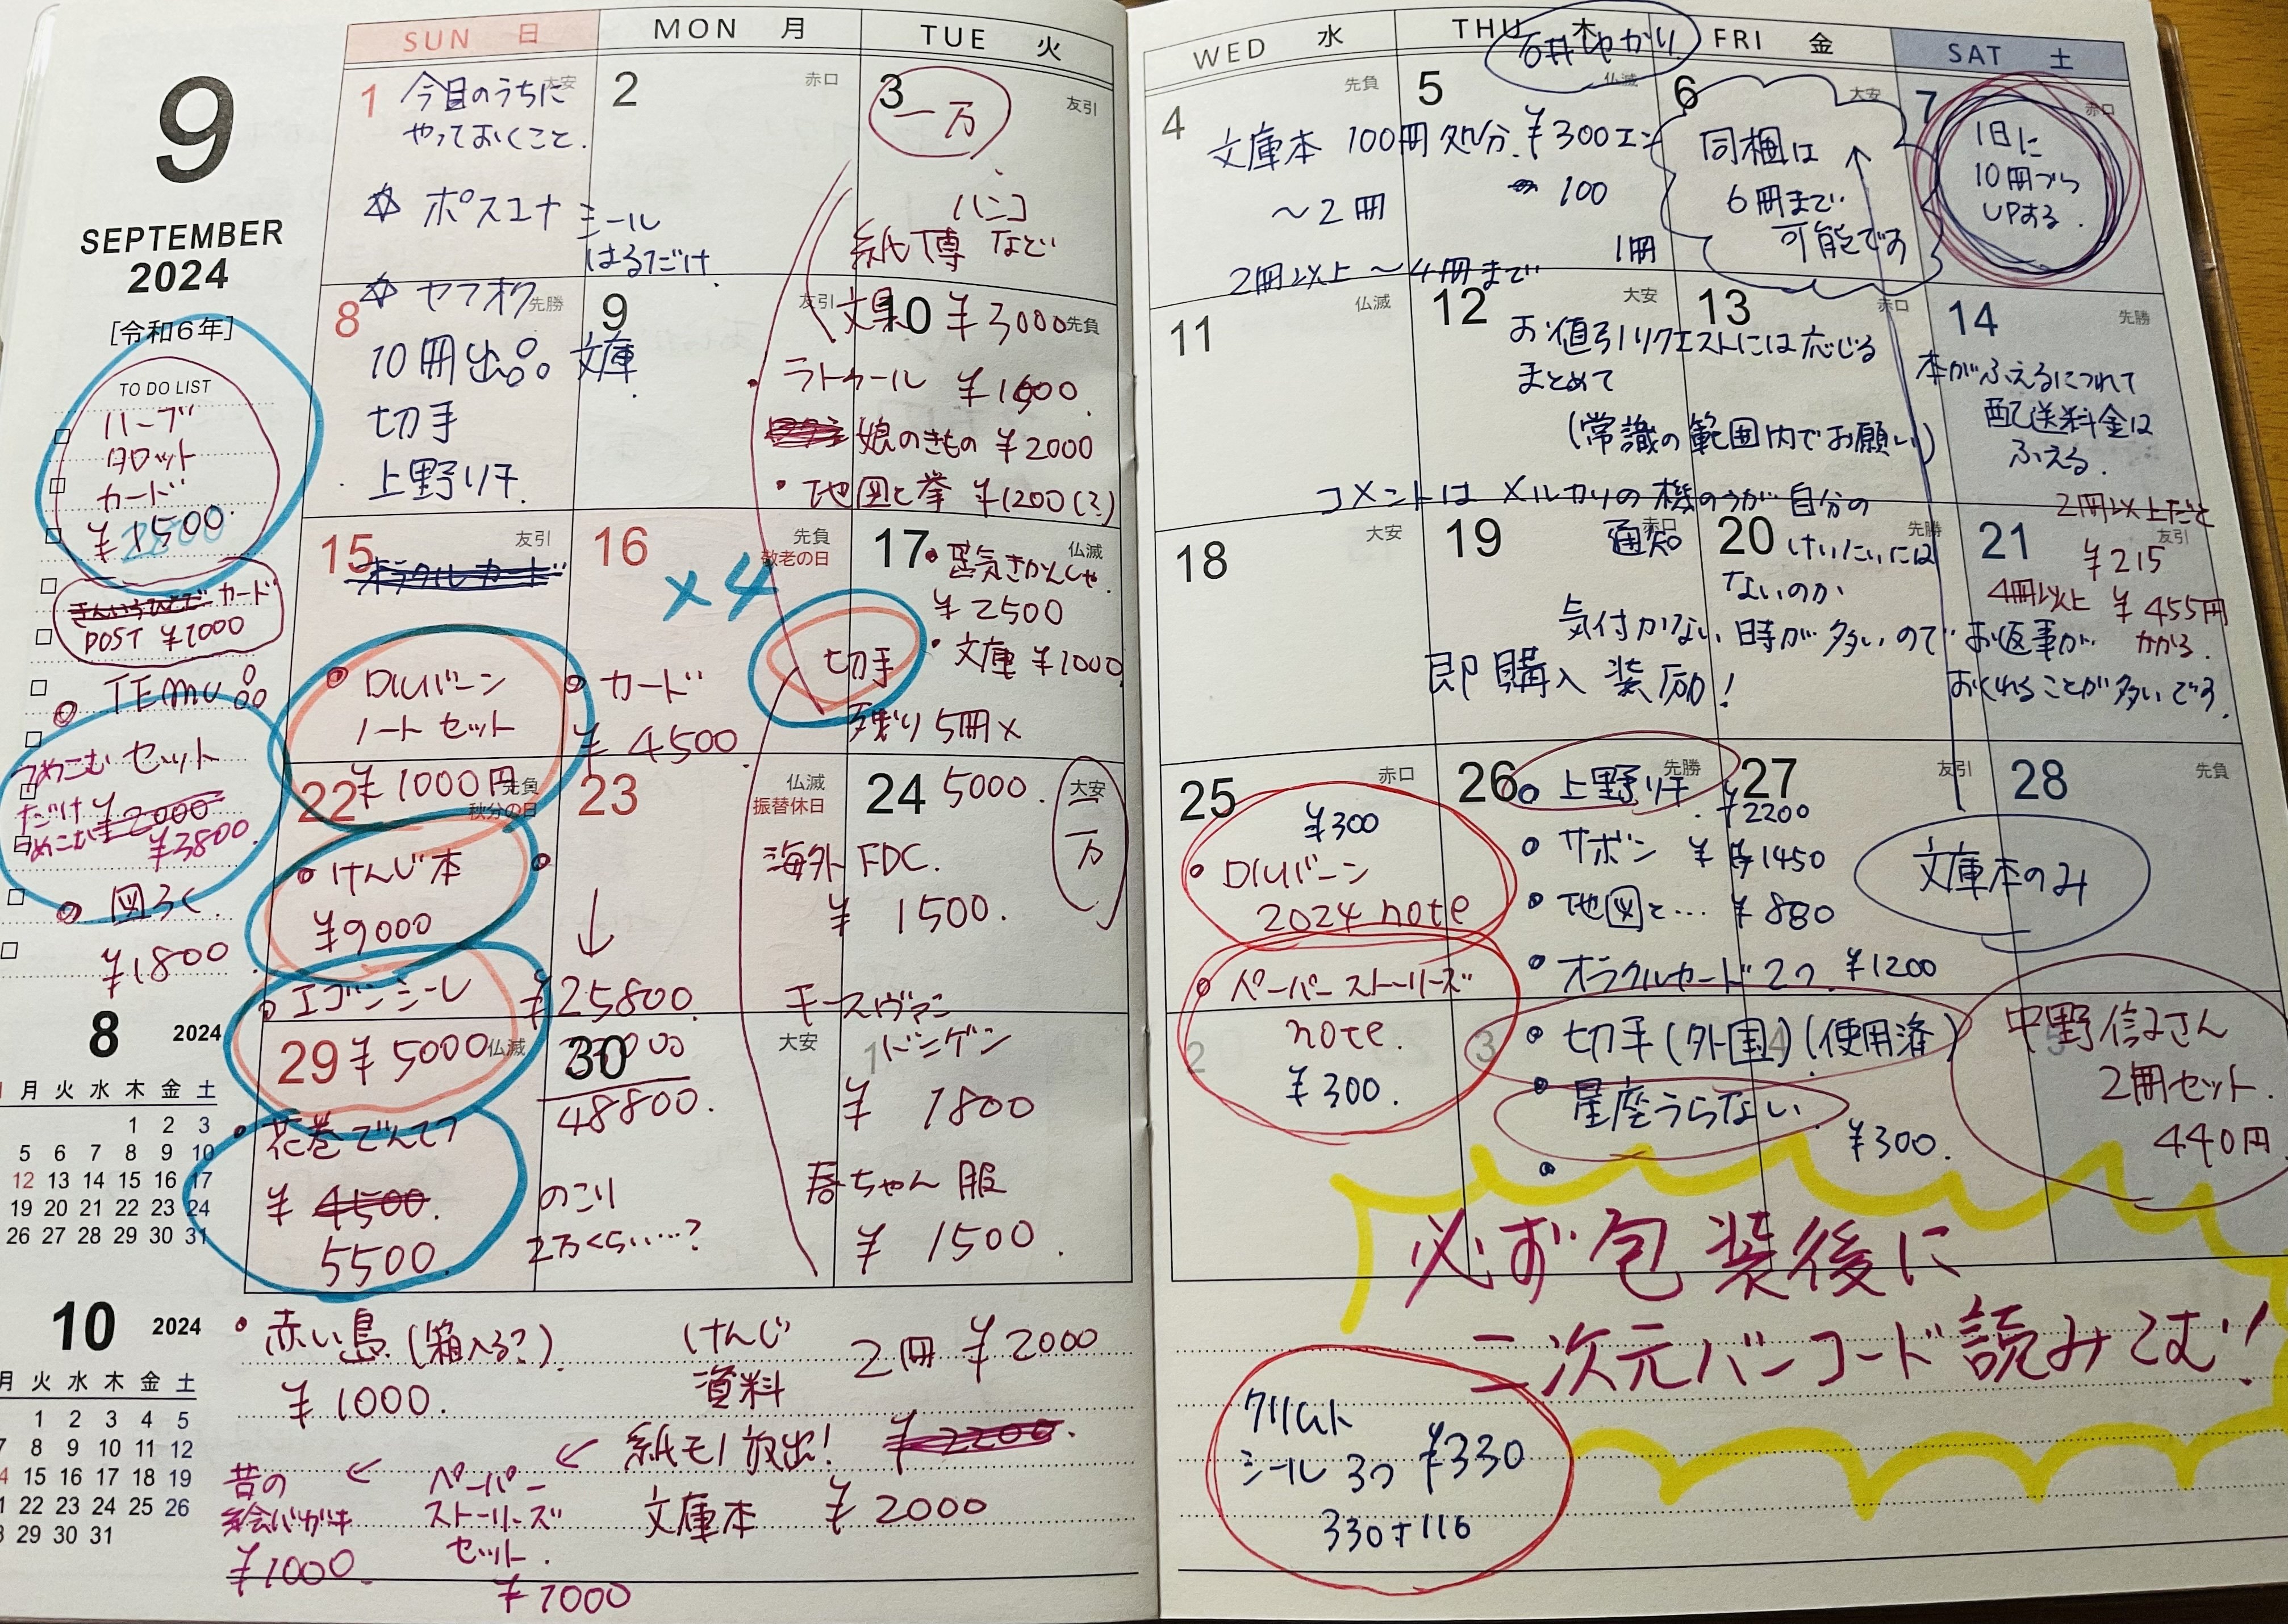 9
SEPTEMBER
2024
[令和6年]
TO DO LIST
ハーブ
タロット
カード
カード
POST ¥1000
TEMU
つめこむ セット
だけ ¥2000
めこむ ¥3800
図ろく
¥1800
8 2024
月 火 水 木 金 土
1 2 3
5 6 7 8 9 10
12 13 14 15 16 17
19 20 21 22 23 24
26 27 28 29 30 31
10 2024
月 火 水 木 金 土
1 2 3 4 5
7 8 9 10 11 12
15 16 17 18 19
22 23 24 25 26
29 30 31
SUN 日
MON 月
TUE 火
1 大安
今日のうちに
やっておくこと.
☆ ポスコナ シール
はるだけ.
☆ ヤフオク
2 赤口
3 友引
一万
ハンコ
紙博 など
文具 ¥3000
8 先勝
10冊出品 文庫
切手
上野リチ
9 友引
10 先負
ラトゥール ¥1600
娘のきもの ¥2000
・地図と拳 ¥1200(?)
15 友引
オラクルカード
DIUバーン
ノート セット
¥1000円
16 先負
敬老の日
×4
カード
¥4500
切手
17 仏滅
¥2500
・文庫 ¥1000
残り 5冊×
5000.
22 先負
秋分の日
・けんじ本
¥9000
エゴンシーレ
¥5000
23 仏滅
振替休日
↓
¥25800.
24 大安
一万
海外 FDC.
¥1500.
29 仏滅
花巻でんてつ
¥4500.
5500.
30 大安
48800.
のこり
2万くらい…?
1
キースヴァン
ドンゲン
¥1800
春ちゃん 服
¥1500.
・赤い鳥 (箱入る?)
¥1000.
けんじ
資料
2冊 ¥2000
紙モノ放出! ¥2200.
← ペーパー
ストーリーズ
セット.
¥1000
← 昔の
絵ハガキ
¥1000.
文庫本 ¥2000
WED 水
THU 木
FRI 金
SAT 土
石井ゆかり
4 先負
5 仏滅
6 大安
7 赤口
文庫本 100冊処分. ¥300エン
100
〜2冊
1冊
2冊以上〜4冊まで
同梱は
6冊まで
可能です
1日に
10冊づつ
UPする.
11 仏滅
12 大安
13 赤口
14 先勝
お値引リクエストには応じる
まとめて
(常識の範囲内でお願い)
本がふえるにつれて
配送料金は
ふえる.
コメントは メルカリの機のうが自分の
通知 けいたいには
ないのか
気付かない時が多いので お返事が
おくれることが多いです.
即購入 装励!
18 大安
19 赤口
20 先勝
21 友引
2冊以上だと
¥215
4冊以上 ¥455円
かかる.
25 赤口
¥300
・DIUバーン
2024 note
・ペーパーストーリーズ
note.
¥300.
26 先勝
27 友引
28 先負
上野リチ. ¥2200
・サボン ¥1450
・地図と… ¥880
・オラクルカード2つ. ¥1200
・切手(外国)(使用済)
・星座うらない.
¥300.
文庫本のみ
2
3
4
5
中野信子さん
2冊セット.
440円
必ず包装後に
二次元バーコード読みこむ!
クリムト
シール 3つ ¥330
330+116